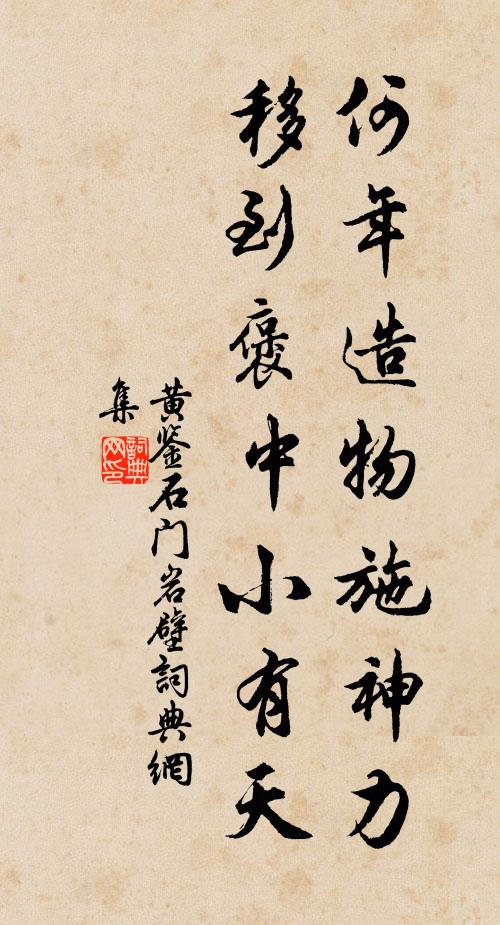 何年造物施神力
移到褒中小有天
黄鉴石门岩壁詞典網
集
詞典网印